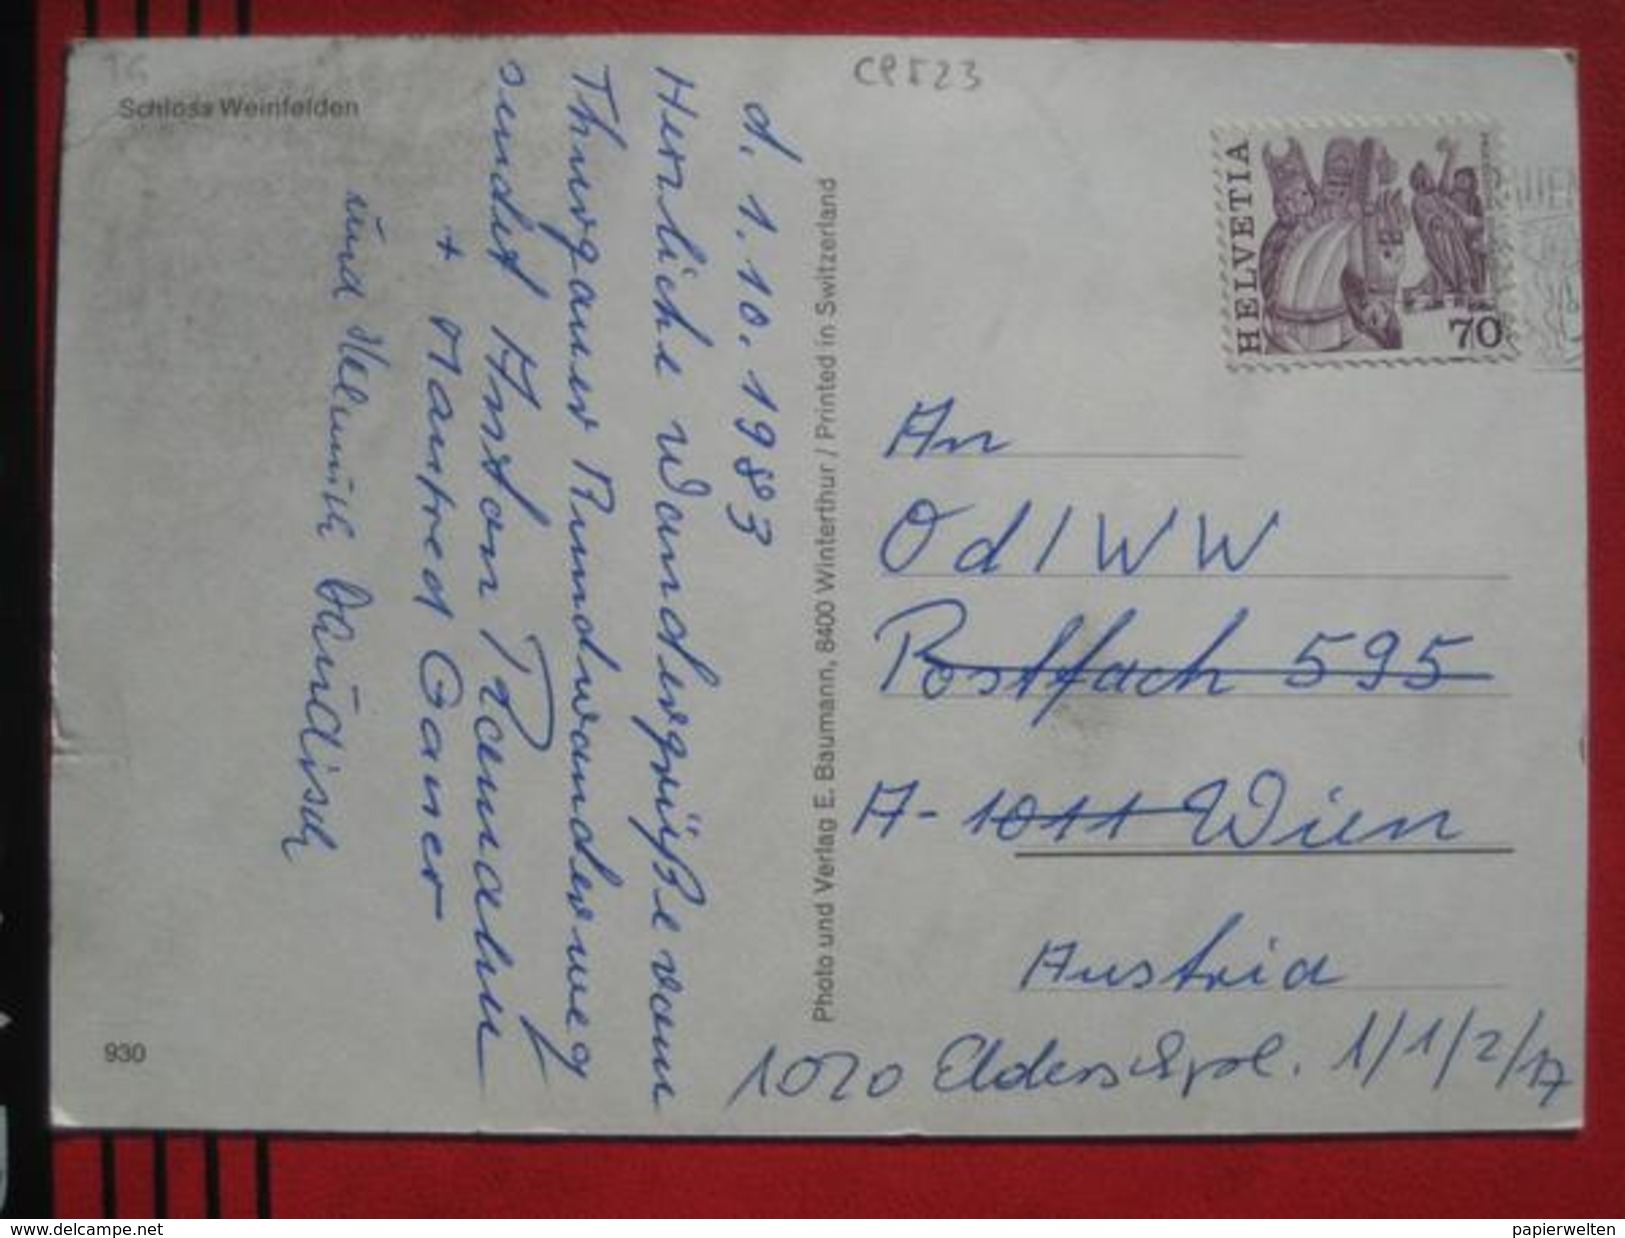 TG
CP523
Schloss Weinfelden
d. 1.10.1983
Herzliche Wandergrüße vom
Thurgauer Rundwanderweg
sendet Anton
+ Manfred Ganer
und Helmuth
930
Photo und Verlag E. Baumann, 8400 Winterthur / Printed in Switzerland
HELVETIA
70
An
OdIWW
Postfach 595
A-1011 Wien
Austria
1020 1/1/2/17
delcampe.net
papierwelten